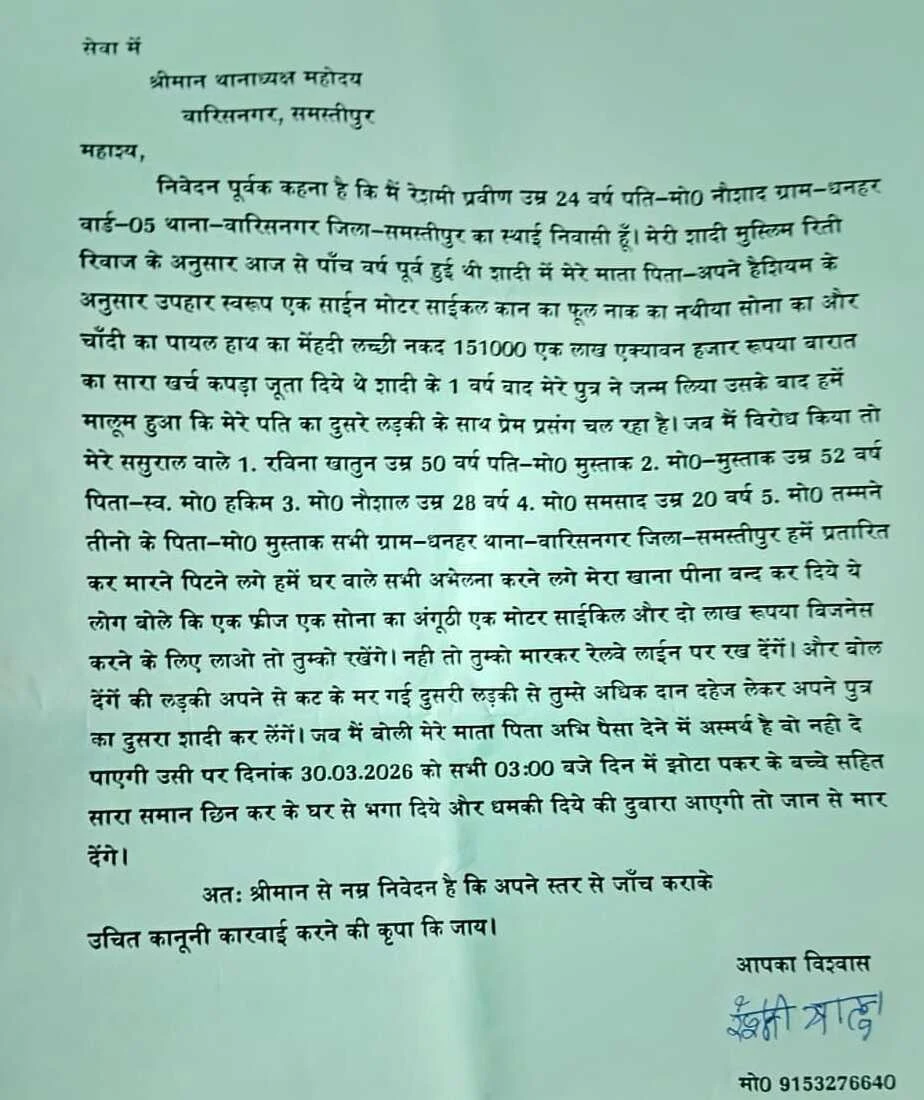 सेवा में
श्रीमान थानाध्यक्ष महोदय
वारिसनगर, समस्तीपुर
महाश्य,
निवेदन पूर्वक कहना है कि मैं रेशमी प्रवीण उम्र 24 वर्ष पति-मो0 नौशाद ग्राम-धनहर
वार्ड-05 थाना-वारिसनगर जिला-समस्तीपुर का स्थाई निवासी हूँ। मेरी शादी मुस्लिम रिती
रिवाज के अनुसार आज से पाँच वर्ष पूर्व हुई थी शादी में मेरे माता पिता-अपने हैशियम के
अनुसार उपहार स्वरूप एक साईन मोटर साईकल कान का फूल नाक का नथीया सोना का और
चाँदी का पायल हाथ का मेंहदी लच्छी नकद 151000 एक लाख एक्यावन हजार रूपया वारात
का सारा खर्च कपड़ा जूता दिये थे शादी के 1 वर्ष वाद मेरे पुत्र ने जन्म लिया उसके वाद हमें
मालूम हुआ कि मेरे पति का दुसरे लड़की के साथ प्रेम प्रसंग चल रहा है। जव मैं विरोध किया तो
मेरे ससुराल वाले 1. रविना खातुन उम्र 50 वर्ष पति-मो0 मुस्ताक 2. मो0-मुस्ताक उम्र 52 वर्ष
पिता-स्व. मो0 हकिम 3. मो0 नौशाल उम्र 28 वर्ष 4. मो0 समसाद उम्र 20 वर्ष 5. मो0 तम्मने
तीनो के पिता-मो0 मुस्ताक सभी ग्राम-धनहर थाना-वारिसनगर जिला-समस्तीपुर हमें प्रतारित
कर मारने पिटने लगे हमें घर वाले सभी अभेलना करने लगे मेरा खाना पीना वन्द कर दिये ये
लोग वोले कि एक फ्रीज एक सोना का अंगूठी एक मोटर साईकिल और दो लाख रूपया विजनेस
करने के लिए लाओ तो तुम्को रखेंगे। नही तो तुम्को मारकर रेलवे लाईन पर रख देंगें। और वोल
देंगें की लड़की अपने से कट के मर गई दुसरी लड़की से तुम्से अधिक दान दहेज लेकर अपने पुत्र
का दुसरा शादी कर लेंगें। जव मैं वोली मेरे माता पिता अभि पैसा देने में अस्मर्थ है वो नही दे
पाएगी उसी पर दिनांक 30.03.2026 को सभी 03:00 वजे दिन में झोटा पकर के वच्चे सहित
सारा समान छिन कर के घर से भगा दिये और धमकी दिये की दुवारा आएगी तो जान से मार
देंगे।
अतः श्रीमान से नम्र निवेदन है कि अपने स्तर से जाँच कराके
उचित कानूनी कारवाई करने की कृपा कि जाय।
आपका विश्वास
मो0 9153276640